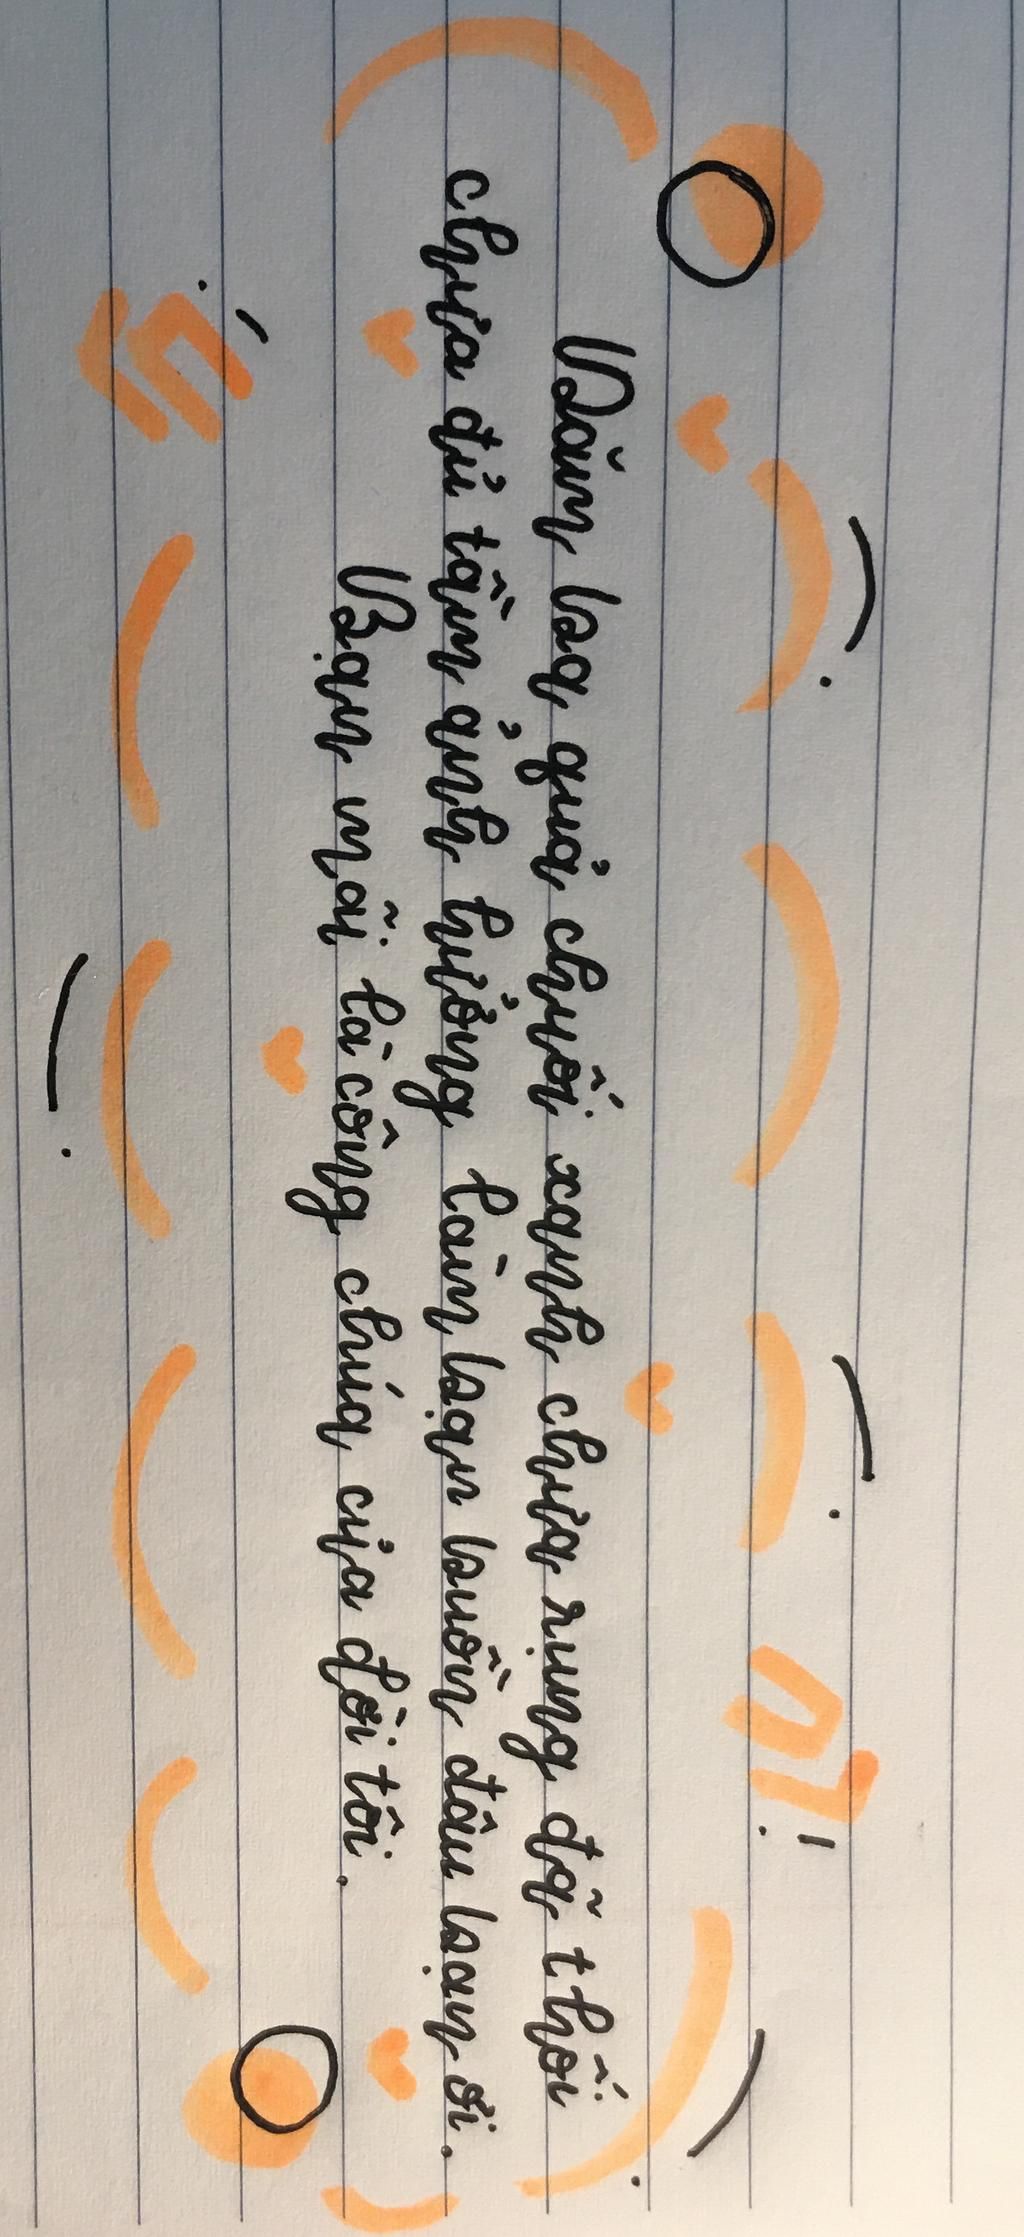 Dăm ba quả chuối xanh chưa rụng đã thối
chưa đủ tầm ảnh hưởng làm bạn buồn đâu bạn ơi.
Bạn mãi là công chúa của đời tôi.